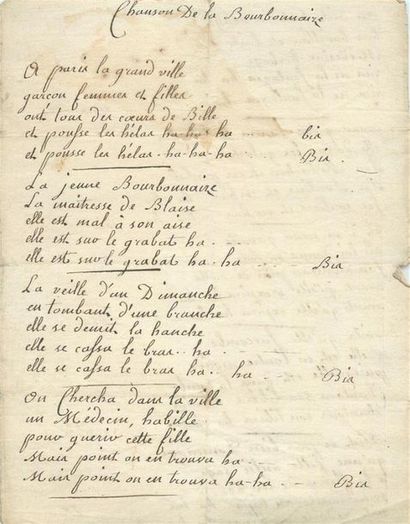 Chanson De la Bourbonnaize
A paris la grand ville
garçon femmes et filles
ont tous des cœurs de Bille
et pousse les hélas ha-ha-ha ... bis
et pousse les hélas-ha-ha-ha ... Bis
La jeune Bourbonnaize
La maitresse de Blaise
elle est mal à son aise
elle est sur le grabat ha...
elle est sur le grabat ha-ha ... Bis
La veille d'un Dimanche
en tombant d'une branche
elle se demit la hanche
elle se cassa le bras..ha...
elle se cassa le bras ha..ha ... Bis
On Chercha dans la ville
un Médecin, habille
pour guerir cette fille
Mais point on en trouva ha...
Mais point on en trouva ha-ha... Bis